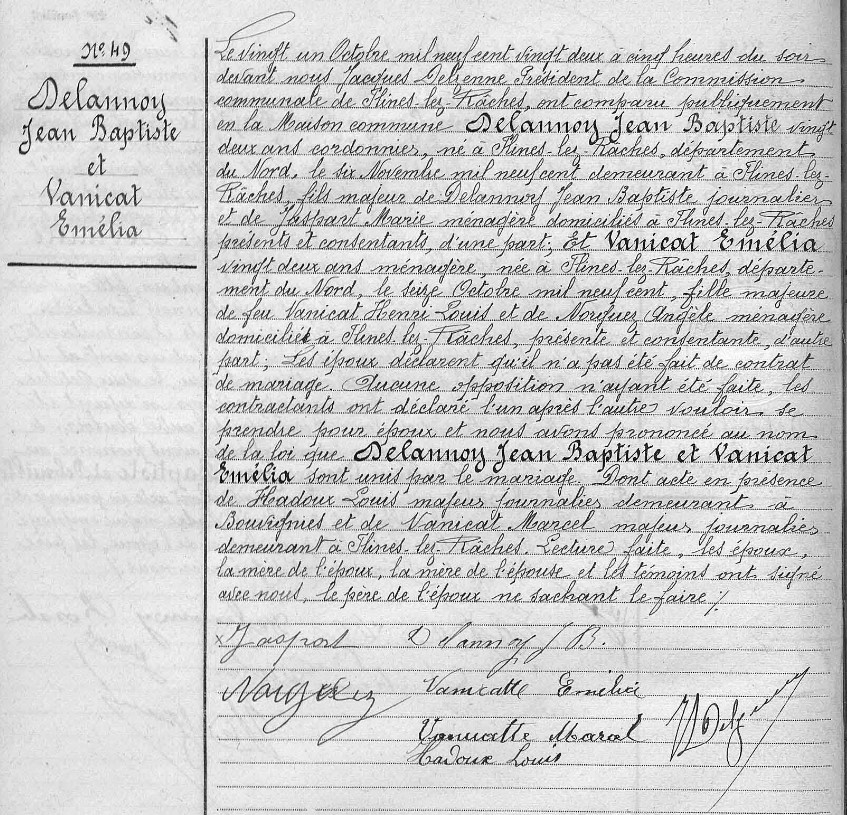 N° 49
Delannoy
Jean Baptiste
et
Vanicat
Emélia
Le vingt un Octobre mil neuf cent vingt deux à cinq heures du soir
devant nous Jacques Delzenne Président de la Commission
communale de Flines-lez-Râches, ont comparu publiquement
en la Maison commune Delannoy Jean Baptiste vingt
deux ans cordonnier, né à Flines-lez-Râches, département
du Nord, le six Novembre mil neuf cent demeurant à Flines-lez-
Râches, fils majeur de Delannoy Jean Baptiste journalier
et de Jaspart Marie ménagère domiciliés à Flines-lez-Râches
présents et consentants, d'une part; Et Vanicat Emélia
vingt deux ans ménagère, née à Flines-lez-Râches, départe-
ment du Nord, le seize Octobre mil neuf cent, fille majeure
de feu Vanicat Henri Louis et de Norguez Angèle ménagère
domiciliée à Flines-lez-Râches, présente et consentante, d'autre
part; Les époux déclarent qu'il n'a pas été fait de contrat
de mariage. Aucune opposition n'ayant été faite, les
contractants ont déclaré l'un après l'autre vouloir se
prendre pour époux et nous avons prononcé au nom
de la loi que Delannoy Jean Baptiste et Vanicat
Emélia sont unis par le mariage. Dont acte en présence
de Hadoux Louis majeur journalier demeurant à
Bouvignies et de Vanicat Marcel majeur journalier
demeurant à Flines-lez-Râches. Lecture faite, les époux,
la mère de l'époux, la mère de l'épouse et les témoins ont signé
avec nous, le père de l'époux ne sachant le faire /.
x Jaspart Delannoy J B.
Vanicatte Emélie
Vanicatte Marcel
Hadoux Louis